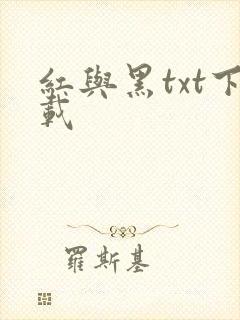 紅與黑txt下
載
羅斯基